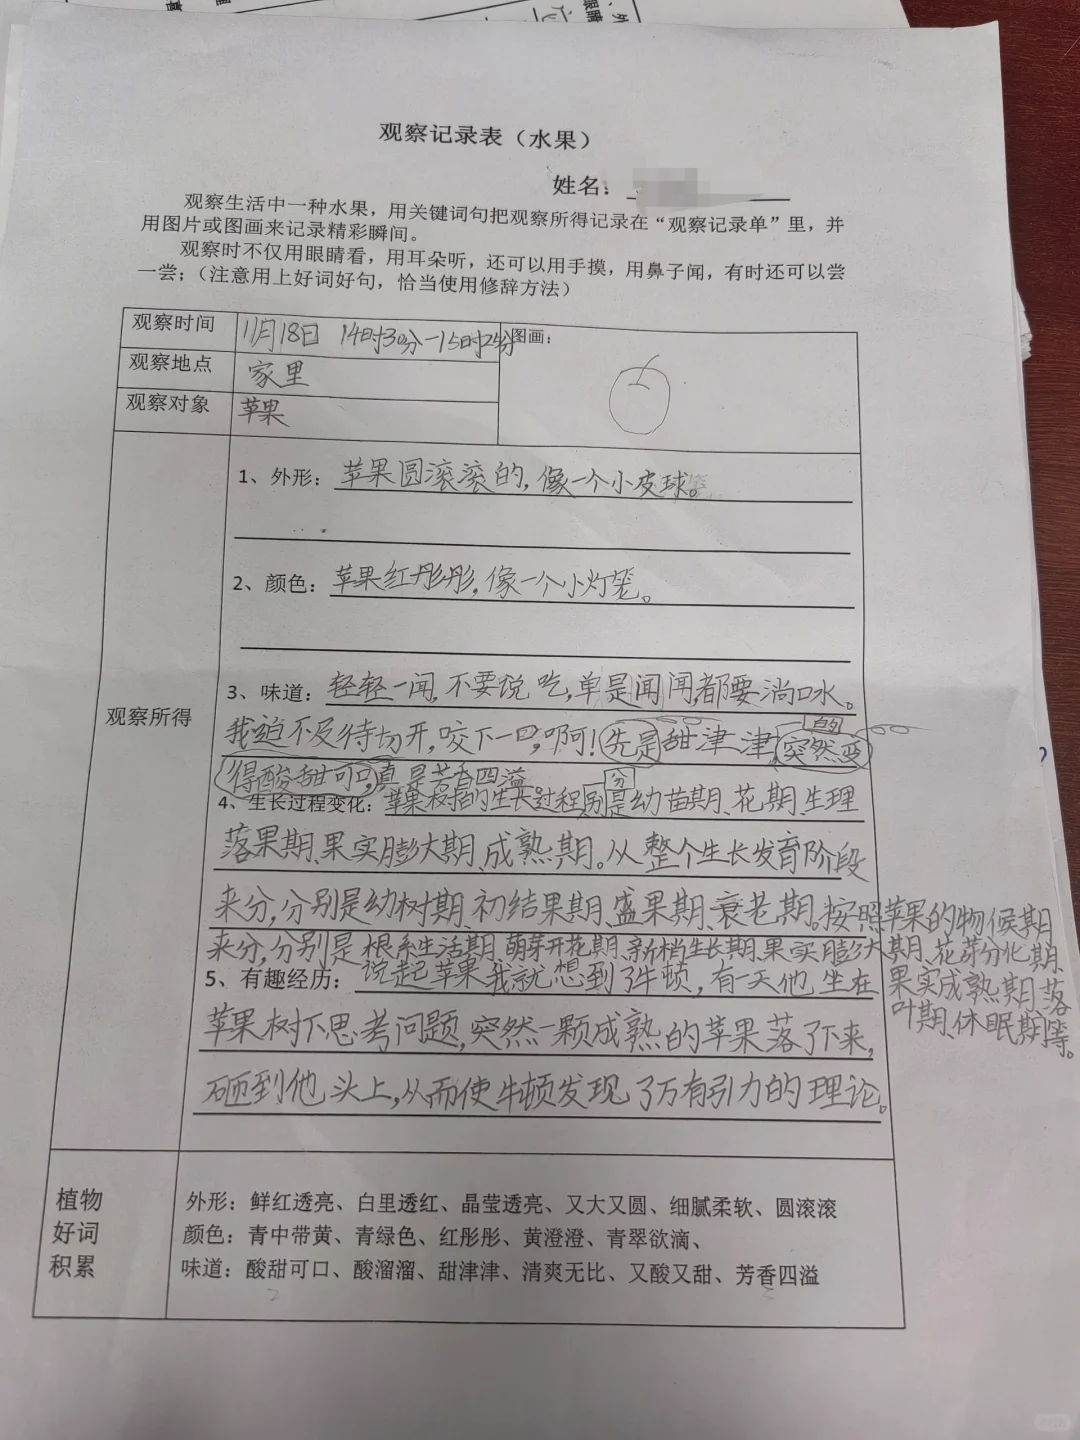 观察记录表（水果）
姓名：
观察生活中一种水果，用关键词句把观察所得记录在“观察记录单”里，并
用图片或图画来记录精彩瞬间。
观察时不仅用眼睛看，用耳朵听，还可以用手摸，用鼻子闻，有时还可以尝
一尝；（注意用上好词好句，恰当使用修辞方法）
观察时间 11月18日 14时30分—15时25分 图画：
观察地点 家里
观察对象 苹果
观察所得
1、外形：苹果圆滚滚的，像一个小皮球。
2、颜色：苹果红彤彤，像一个小灯笼。
3、味道：轻轻一闻，不要说吃，单是闻闻，都要淌口水。
我迫不及待切开，咬下一口，啊！先是甜津津的突然变
得酸甜可口，真是芳香四溢。
4、生长过程变化：苹果树的生长过程分别是幼苗期、花期、生理
落果期、果实膨大期、成熟期。从整个生长发育阶段
来分，分别是幼树期、初结果期、盛果期、衰老期。按照苹果的物候期
来分，分别是根系生活期、萌芽开花期、新梢生长期、果实膨大期、花芽分化期、
果实成熟期、落
叶期、休眠期等。
5、有趣经历：说起苹果我就想到了牛顿，有一天他坐在
苹果树下思考问题，突然一颗成熟的苹果落了下来，
砸到他头上，从而使牛顿发现了万有引力的理论。
植物
好词
积累
外形：鲜红透亮、白里透红、晶莹透亮、又大又圆、细腻柔软、圆滚滚
颜色：青中带黄、青绿色、红彤彤、黄澄澄、青翠欲滴、
味道：酸甜可口、酸溜溜、甜津津、清爽无比、又酸又甜、芳香四溢